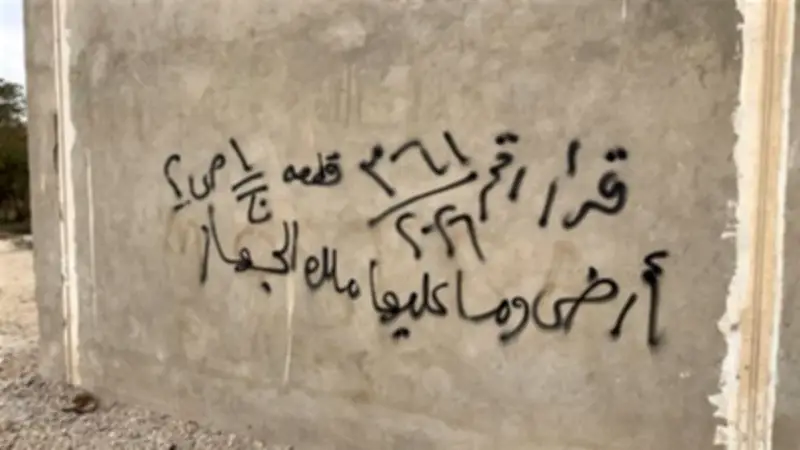 قرار رقم ٣٦٦١/٢٠٢٦ قطعه ١/ج ص٤
أرض وما عليها ملك الجهاز